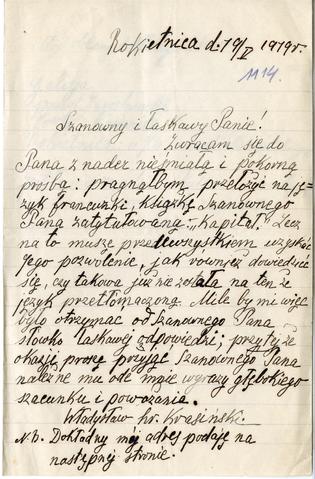 Rokietnica d. 19/V 1919 r.
1114.
Szanowny i Łaskawy Panie!
Zwracam się do
Pana z nader nieśmiałą i pokorną
prośbą: pragnąłbym przełożyć na ję-
zyk francuzki, książkę Szanownego
Pana zatytułowaną: „Kapitał.” Lecz
na to muszę przedewszystkiem uzyskać
Jego pozwolenie, jak również dowiedzieć
się, czy takowa już nie została na ten że
język przetłomaczoną. Mile by mi więc
było otrzymać od Szanownego Pana
słówko łaskawej odpowiedzi; przy tej że
okazji proszę przyjąć Szanownego Pana
należne mu ode mnie wyrazy głębokiego
szacunku i poważania.
Władysław hr. Krasiński.
N.b. Dokładny mój adres podaję na
następnej stronie.